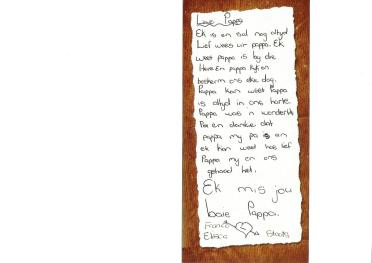 Lewe Pappa
Ek is en sal nog altyd
Lief wees vir pappa. Ek
weet pappa is by die
Here En pappa kyk en
beskerm ons elke dag.
Pappa kan weet Pappa
is altyd in ons harte.
Pappa was 'n wonderlike
Pa en dankie dat
pappa my pa is en
ek kan weet hoe lief
Pappa my en ons
gehaad het.
Ek mis jou
baie Pappa.
Franco
Elisca Staats